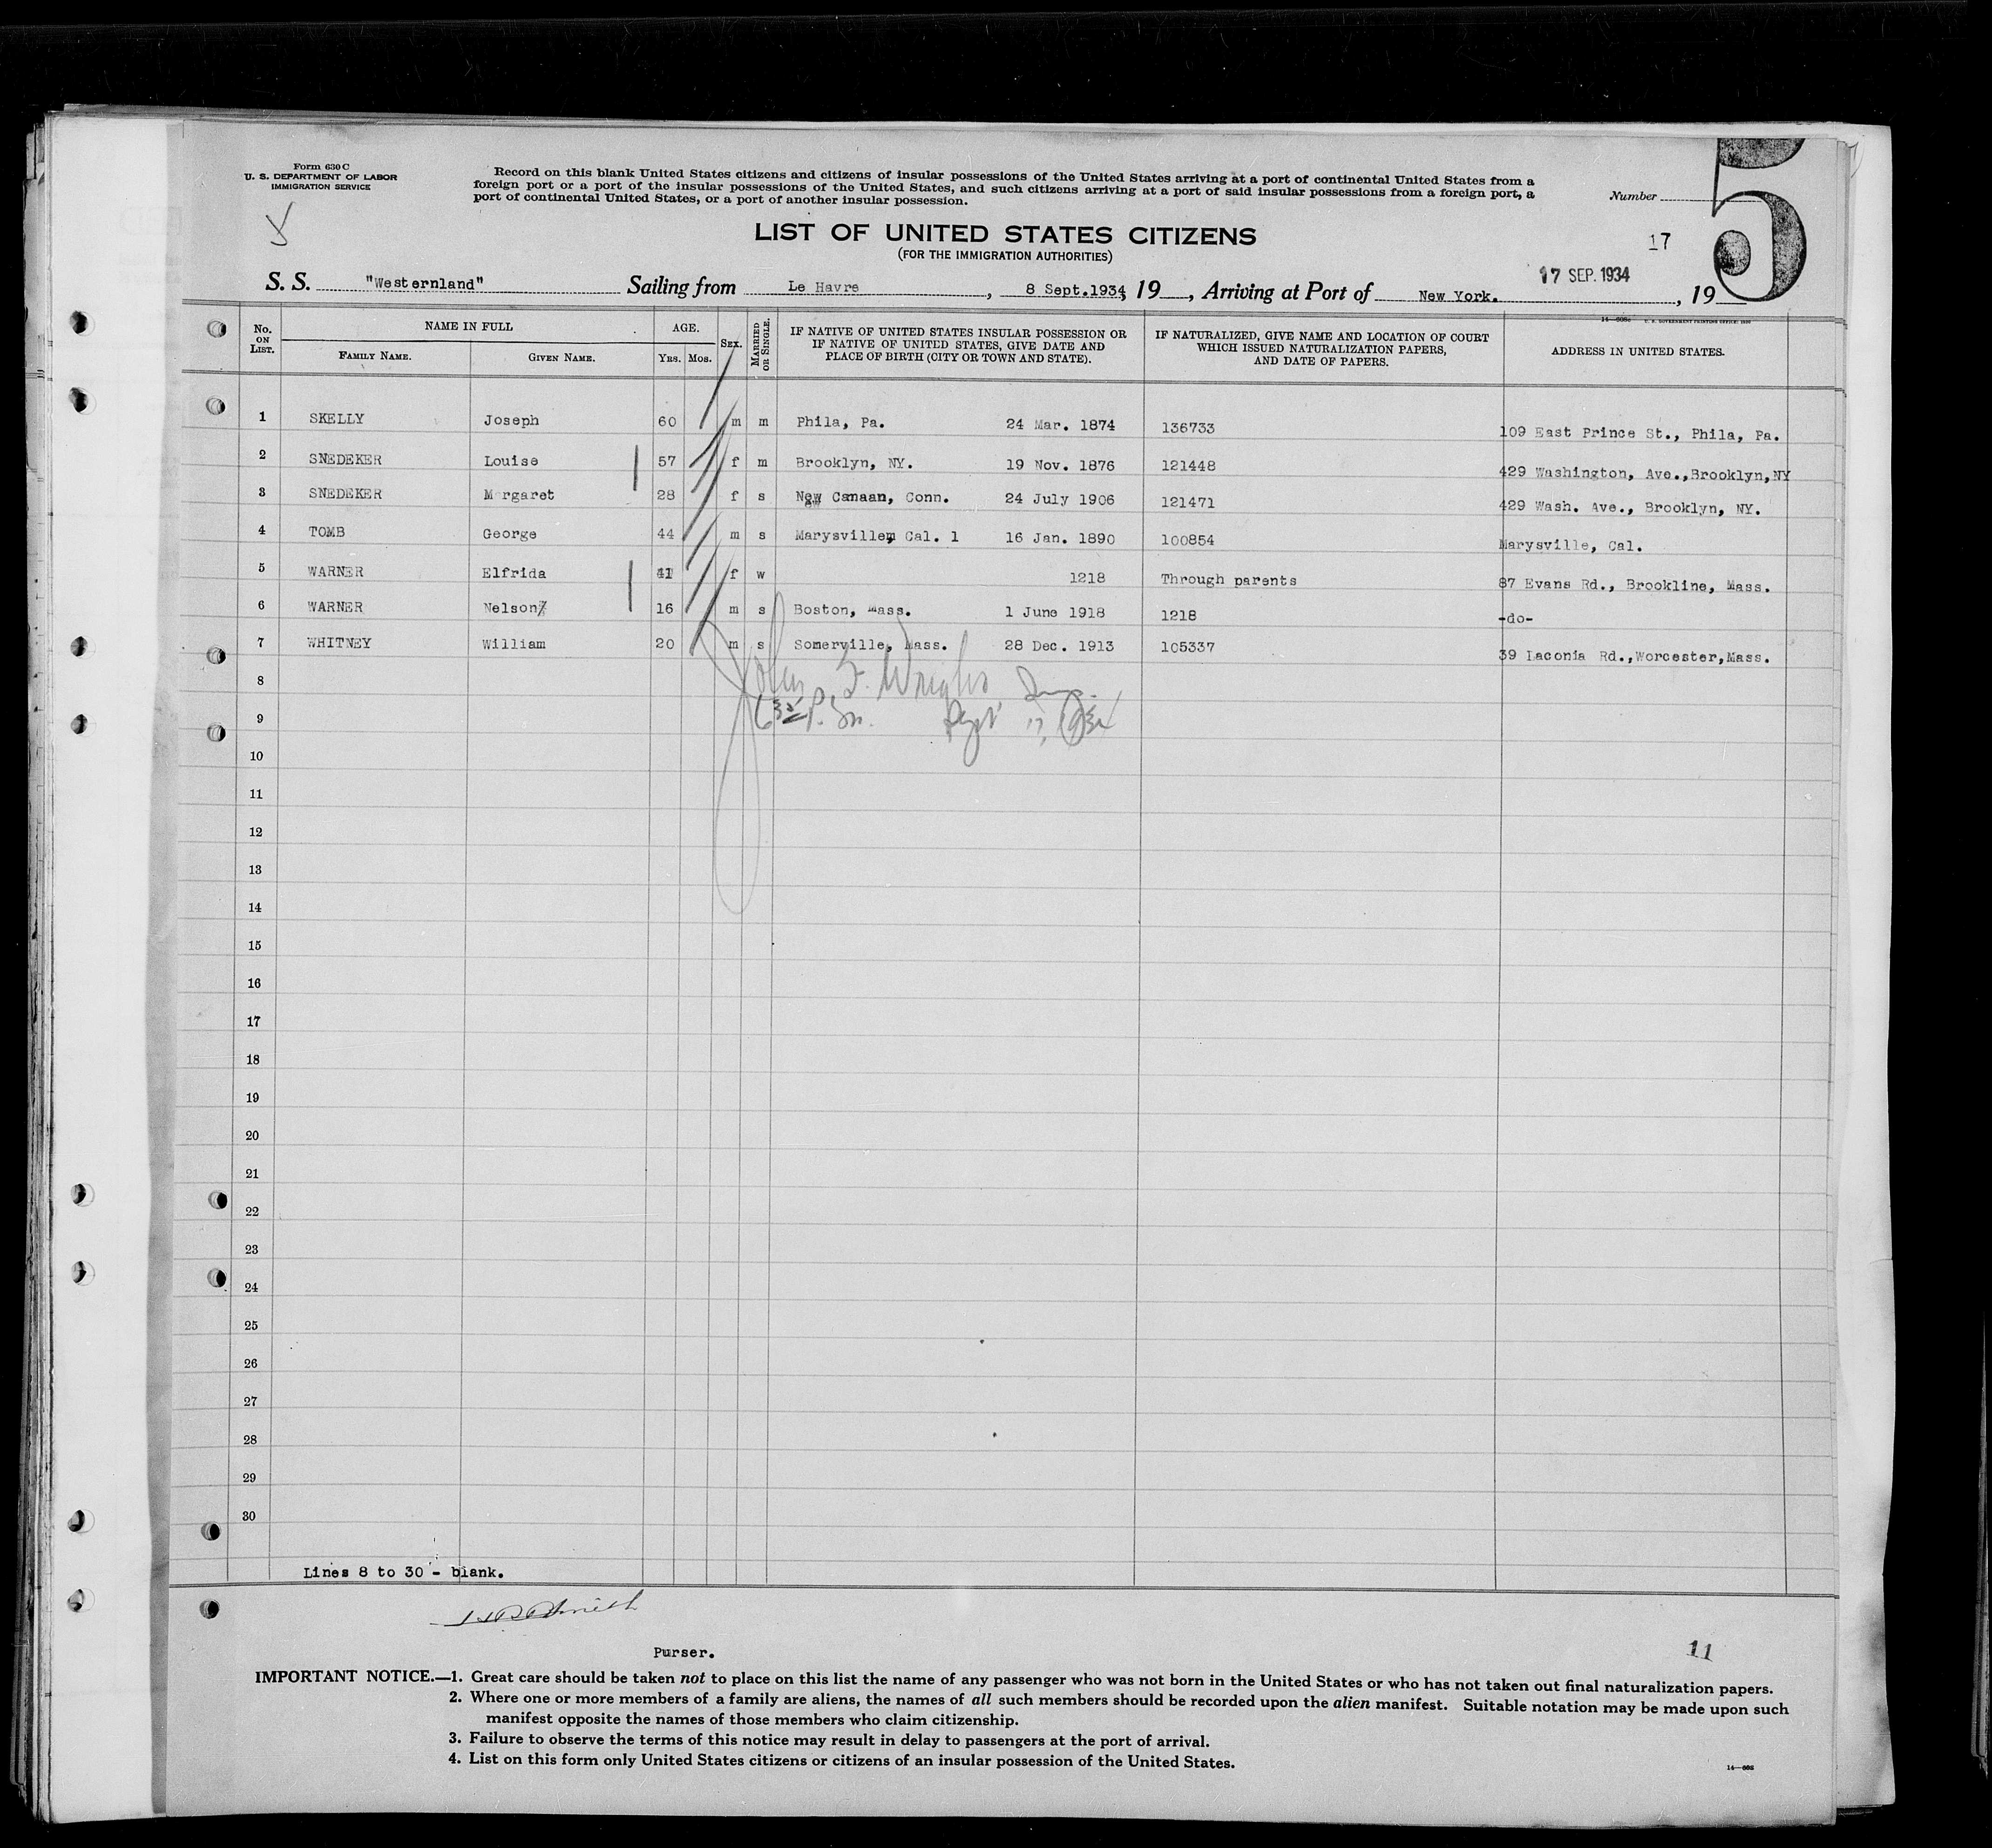 Form 630 C
U. S. DEPARTMENT OF LABOR
IMMIGRATION SERVICE
Record on this blank United States citizens and citizens of insular possessions of the United States arriving at a port of continental United States from a
foreign port or a port of the insular possessions of the United States, and such citizens arriving at a port of said insular possessions from a foreign port, a
port of continental United States, or a port of another insular possession.
Number
5
17
LIST OF UNITED STATES CITIZENS
(FOR THE IMMIGRATION AUTHORITIES)
S. S. "Westernland" Sailing from Le Havre, 8 Sept.1934, 19 , Arriving at Port of New York. 17 SEP. 1934, 19
No. ON LIST. NAME IN FULL FAMILY NAME. GIVEN NAME. AGE. YRS. MOS. SEX. MARRIED OR SINGLE. IF NATIVE OF UNITED STATES INSULAR POSSESSION OR IF NATIVE OF UNITED STATES, GIVE DATE AND PLACE OF BIRTH (CITY OR TOWN AND STATE). IF NATURALIZED, GIVE NAME AND LOCATION OF COURT WHICH ISSUED NATURALIZATION PAPERS, AND DATE OF PAPERS. ADDRESS IN UNITED STATES.
1 SKELLY Joseph 60 m m Phila, Pa. 24 Mar. 1874 136733 109 East Prince St., Phila, Pa.
2 SNEDEKER Louise 57 f m Brooklyn, NY. 19 Nov. 1876 121448 429 Washington, Ave.,Brooklyn,NY
3 SNEDEKER Margaret 28 f s New Canaan, Conn. 24 July 1906 121471 429 Wash. Ave., Brooklyn, NY.
4 TOMB George 44 m s Marysville, Cal. 1 16 Jan. 1890 100854 Marysville, Cal.
5 WARNER Elfrida 41 f w 1218 Through parents 87 Evans Rd., Brookline, Mass.
6 WARNER Nelson 16 m s Boston, Mass. 1 June 1918 1218 -do-
7 WHITNEY William 20 m s Somerville, Mass. 28 Dec. 1913 105337 39 Laconia Rd.,Worcester,Mass.
8
John F. Wright Insp.
9
Sept 17, 1934
10
11
12
13
14
15
16
17
18
19
20
21
22
23
24
25
26
27
28
29
30
Lines 8 to 30 - blank.
Smith
Purser.
11
IMPORTANT NOTICE.—1. Great care should be taken not to place on this list the name of any passenger who was not born in the United States or who has not taken out final naturalization papers.
2. Where one or more members of a family are aliens, the names of all such members should be recorded upon the alien manifest. Suitable notation may be made upon such
manifest opposite the names of those members who claim citizenship.
3. Failure to observe the terms of this notice may result in delay to passengers at the port of arrival.
4. List on this form only United States citizens or citizens of an insular possession of the United States.